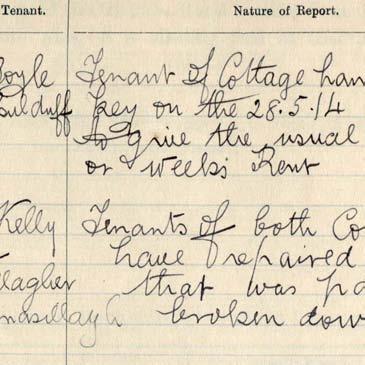 Tenant. Nature of Report.
Boyle Tenant of Cottage han
key on the 28.5.14
to give the usual
or weeks Rent
Kelly Tenants of both Co
have repaired
llagher that was pa
broken dow